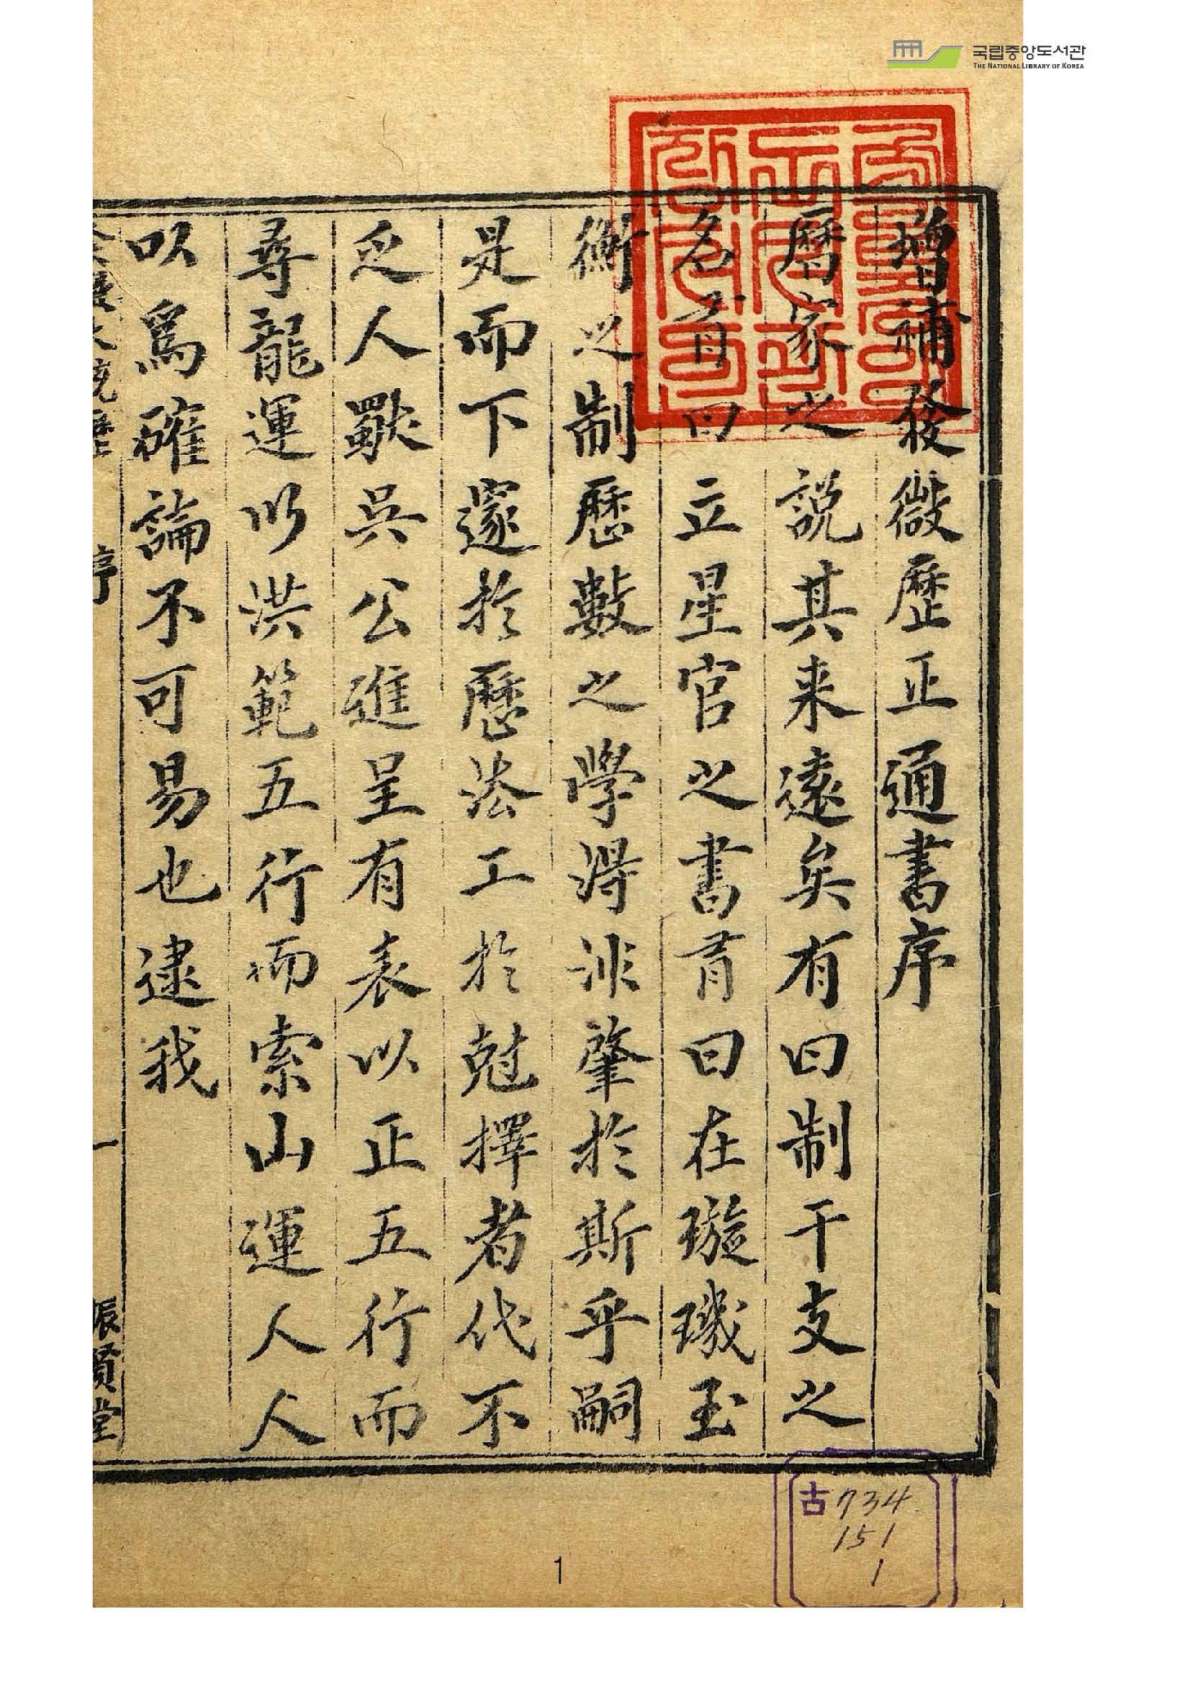 국립중앙도서관
THE NATIONAL LIBRARY OF KOREA
增補發微歷正通書序
曆家之說其来遠矣有曰制干支之
名首曰立星官之書肯曰在璇璣玉
衡之制歷數之學淂非肇於斯乎嗣
是而下邃於歷法工於尅擇者代不
乏人歐吳公進呈有表以正五行而
尋龍運以洪範五行而索山運人人
以爲確論不可易也逮我
序
一
振賢堂
古734
151
1
1